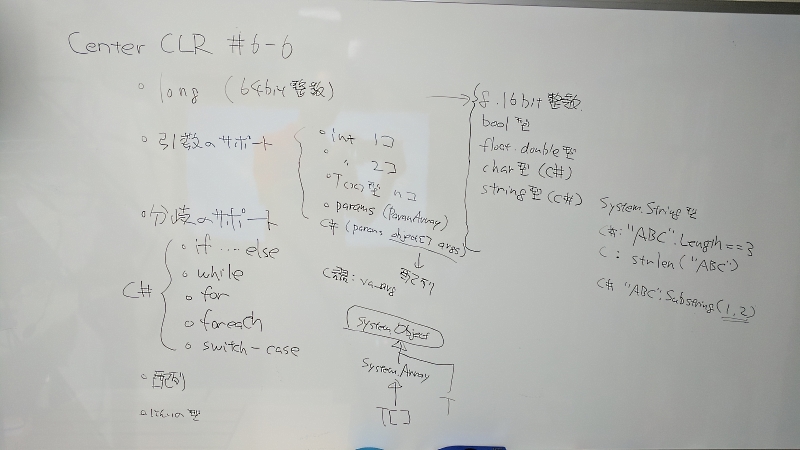 Center CLR #6-6
・long (64bit整数)
・引数のサポート
・int 1コ
・〃 2コ
・T(なに)型 nコ
・params (ParamArray)
C# (params object[] args)
配列
C言語: va-arg
8.16bit整数
bool型
float.double型
char型 (C#)
string型 (C#)
・分岐のサポート
C#
・if .... else
・while
・for
・foreach
・switch-case
・配列
System.Object
System.Array
T[]
T
System.String型
C#: "ABC".Length==3
C: strlen("ABC")
C# "ABC".Substring(1,2)